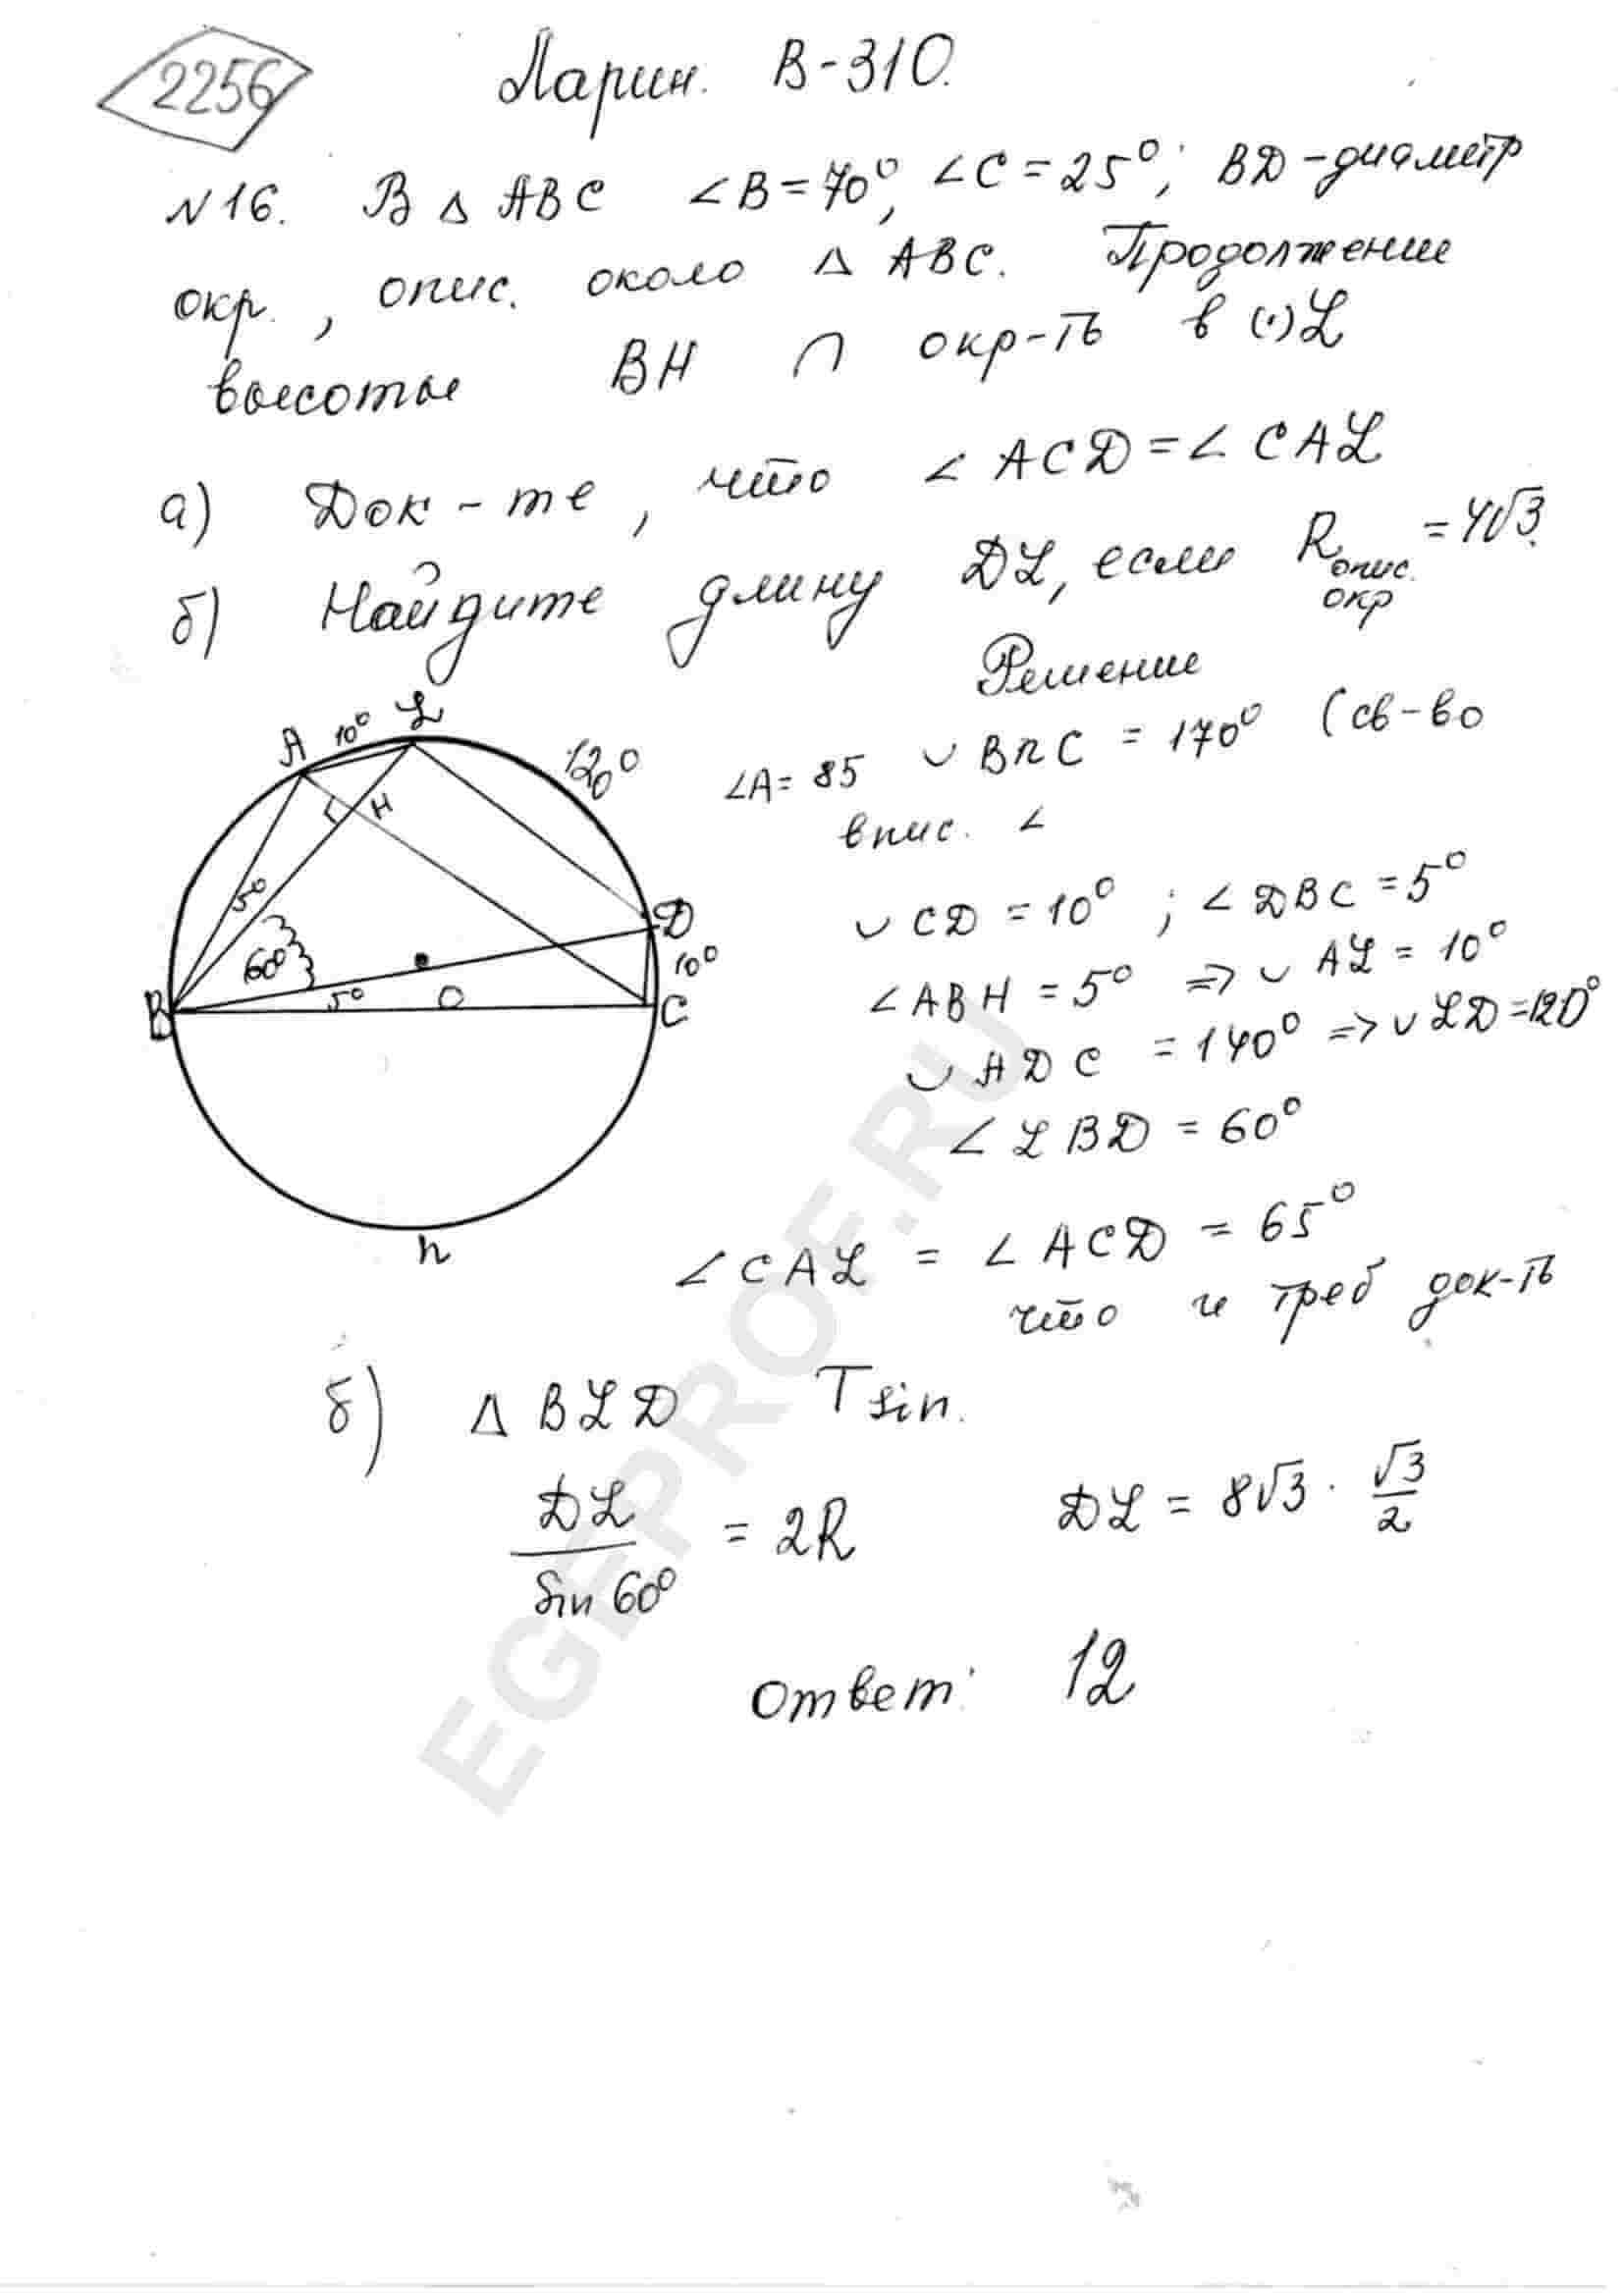 2256
Ларин. В-310.
№16. В △ ABC ∠B=70°, ∠C=25°; BD-диаметр
окр., опис. около △ ABC. Продолжение
высоты BH ∩ окр-ть в (·)L
а) Док-те, что ∠ACD=∠CAL
б) Найдите длину DL, если Rопис. окр =4√3.
Решение
A 10° L
120°
∠A=85 ◡BnC = 170° (св-во
впис. ∠
H
◡CD = 10° ; ∠DBC = 5°
5°
D
60°
10°
∠ABH = 5° => ◡AL = 10°
B 5° O C
◡ADC = 140° => ◡LD=120°
∠LBD = 60°
n
∠CAL = ∠ACD = 65°
что и треб док-ть
б) △BLD Tsin.
DL/sin 60° = 2R DL = 8√3 · √3/2
ответ: 12
EGEPROF.RU